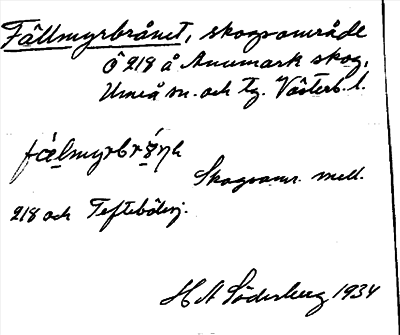 Fällmyrbrånet, skogsområde
Ö 218 å Anumark skog,
Umeå sn. och tg. Västerb. l.
fälmyrbrånɂ
Skogsomr. mell.
218 och Teftebölevj.
H A Söderberg 1934